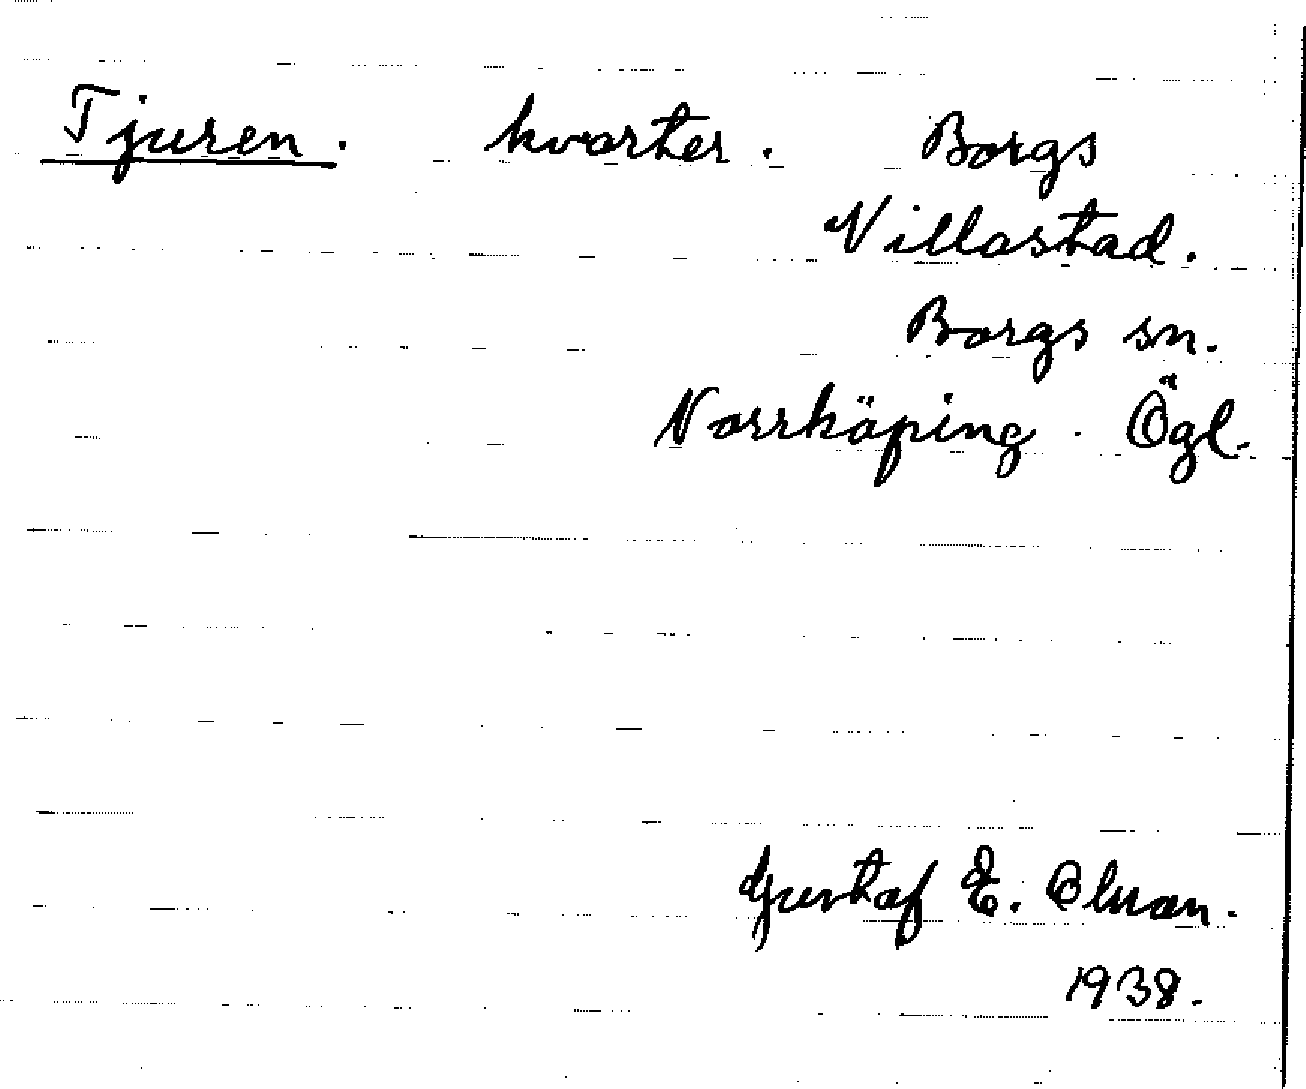 Tjuren. kvarter. Borgs
Villastad.
Borgs sn.
Norrköping. Ögl.
Gustaf E. Olsson.
1938.